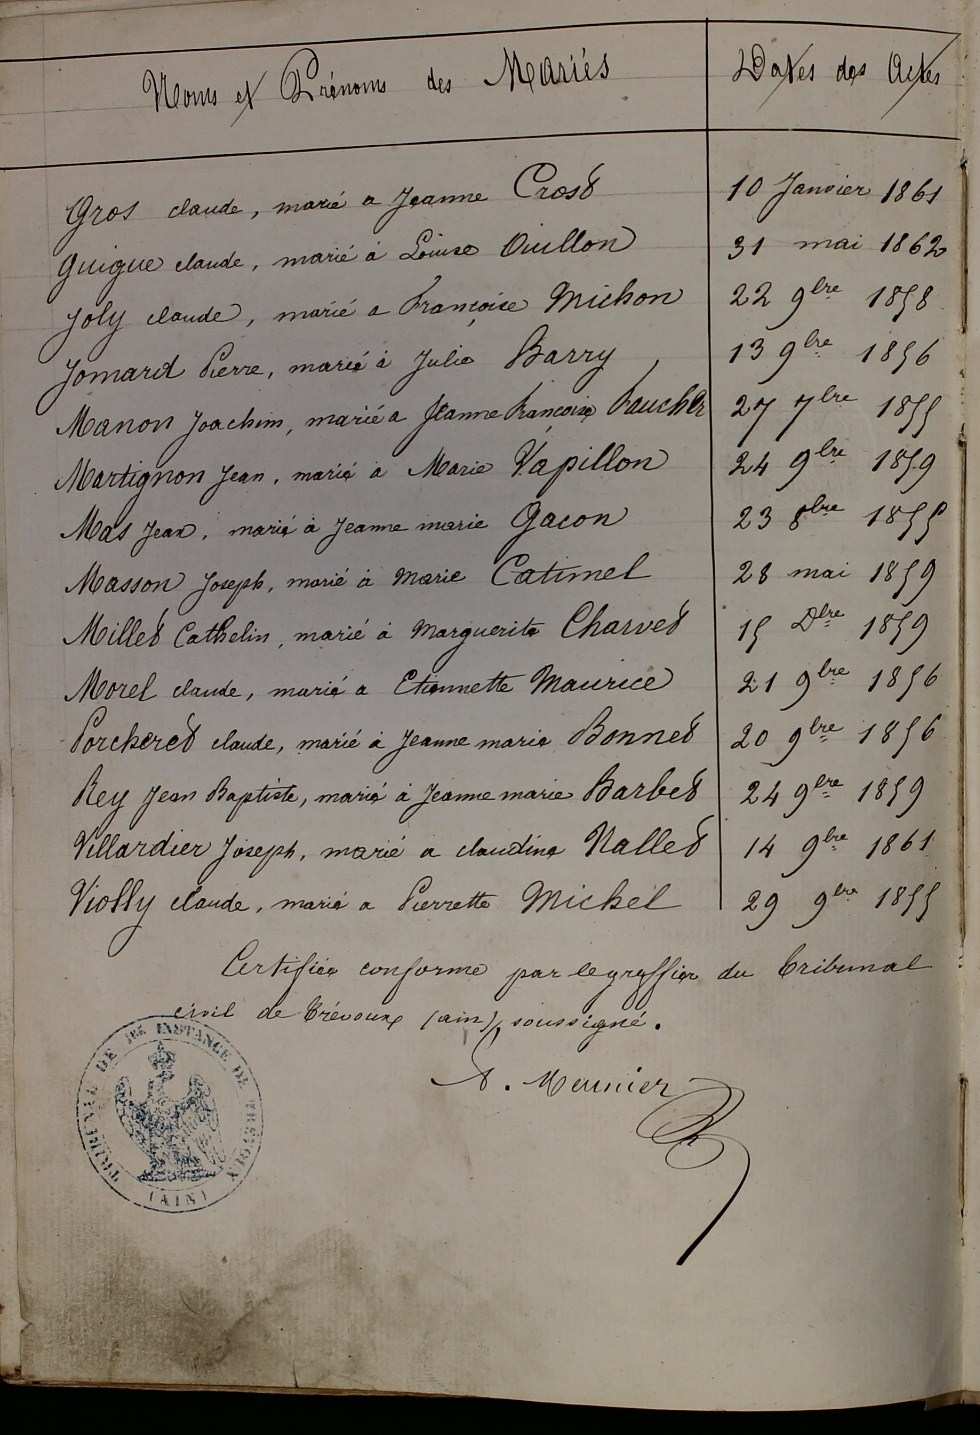 Noms et Prénoms des Mariés
Dates des Actes
Gros claude, marié a Jeanne Crost 10 Janvier 1861
Guigue claude, marié à Louise Ouillon 31 mai 1862
Joly claude, marié a Françoise Michon 22 9bre 1858
Jomard Pierre, marié à Julie Barry 13 9bre 1856
Manon Joachim, marié a Jeanne Françoise Faucher 27 7bre 1855
Martignon Jean, marié à Marie Papillon 24 9bre 1859
Mas Jean, marié à Jeanne marie Gacon 23 8bre 1855
Masson Joseph, marié à marie Catimel 28 mai 1859
Millet Cathelin, marié à Marguerite Charvet 15 Dbre 1859
Morel claude, marié a Etiennette Maurice 21 9bre 1856
Porcheret claude, marié à Jeanne marie Bonnet 20 9bre 1856
Rey Jean Baptiste, marié à Jeanne marie Barbet 24 9bre 1859
Villardier Joseph, marié a claudine Nallet 14 9bre 1861
Violly claude, marié a Pierrette Michel 29 9bre 1855
Certifiée conforme par le greffier du tribunal
civil de trévoux (ain) soussigné.
A. Meunier
TRIBUNAL DE 1ERE INSTANCE DE TREVOUX
(AIN)